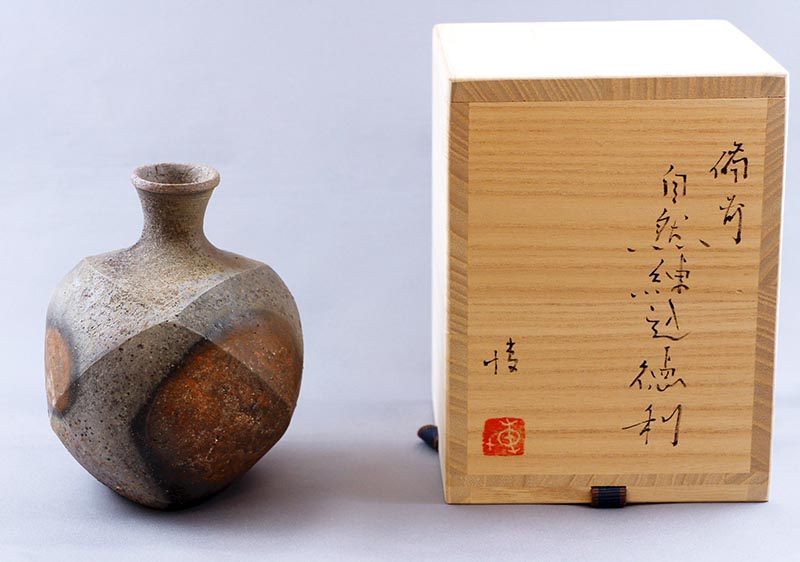 備前
自然練込徳利
博